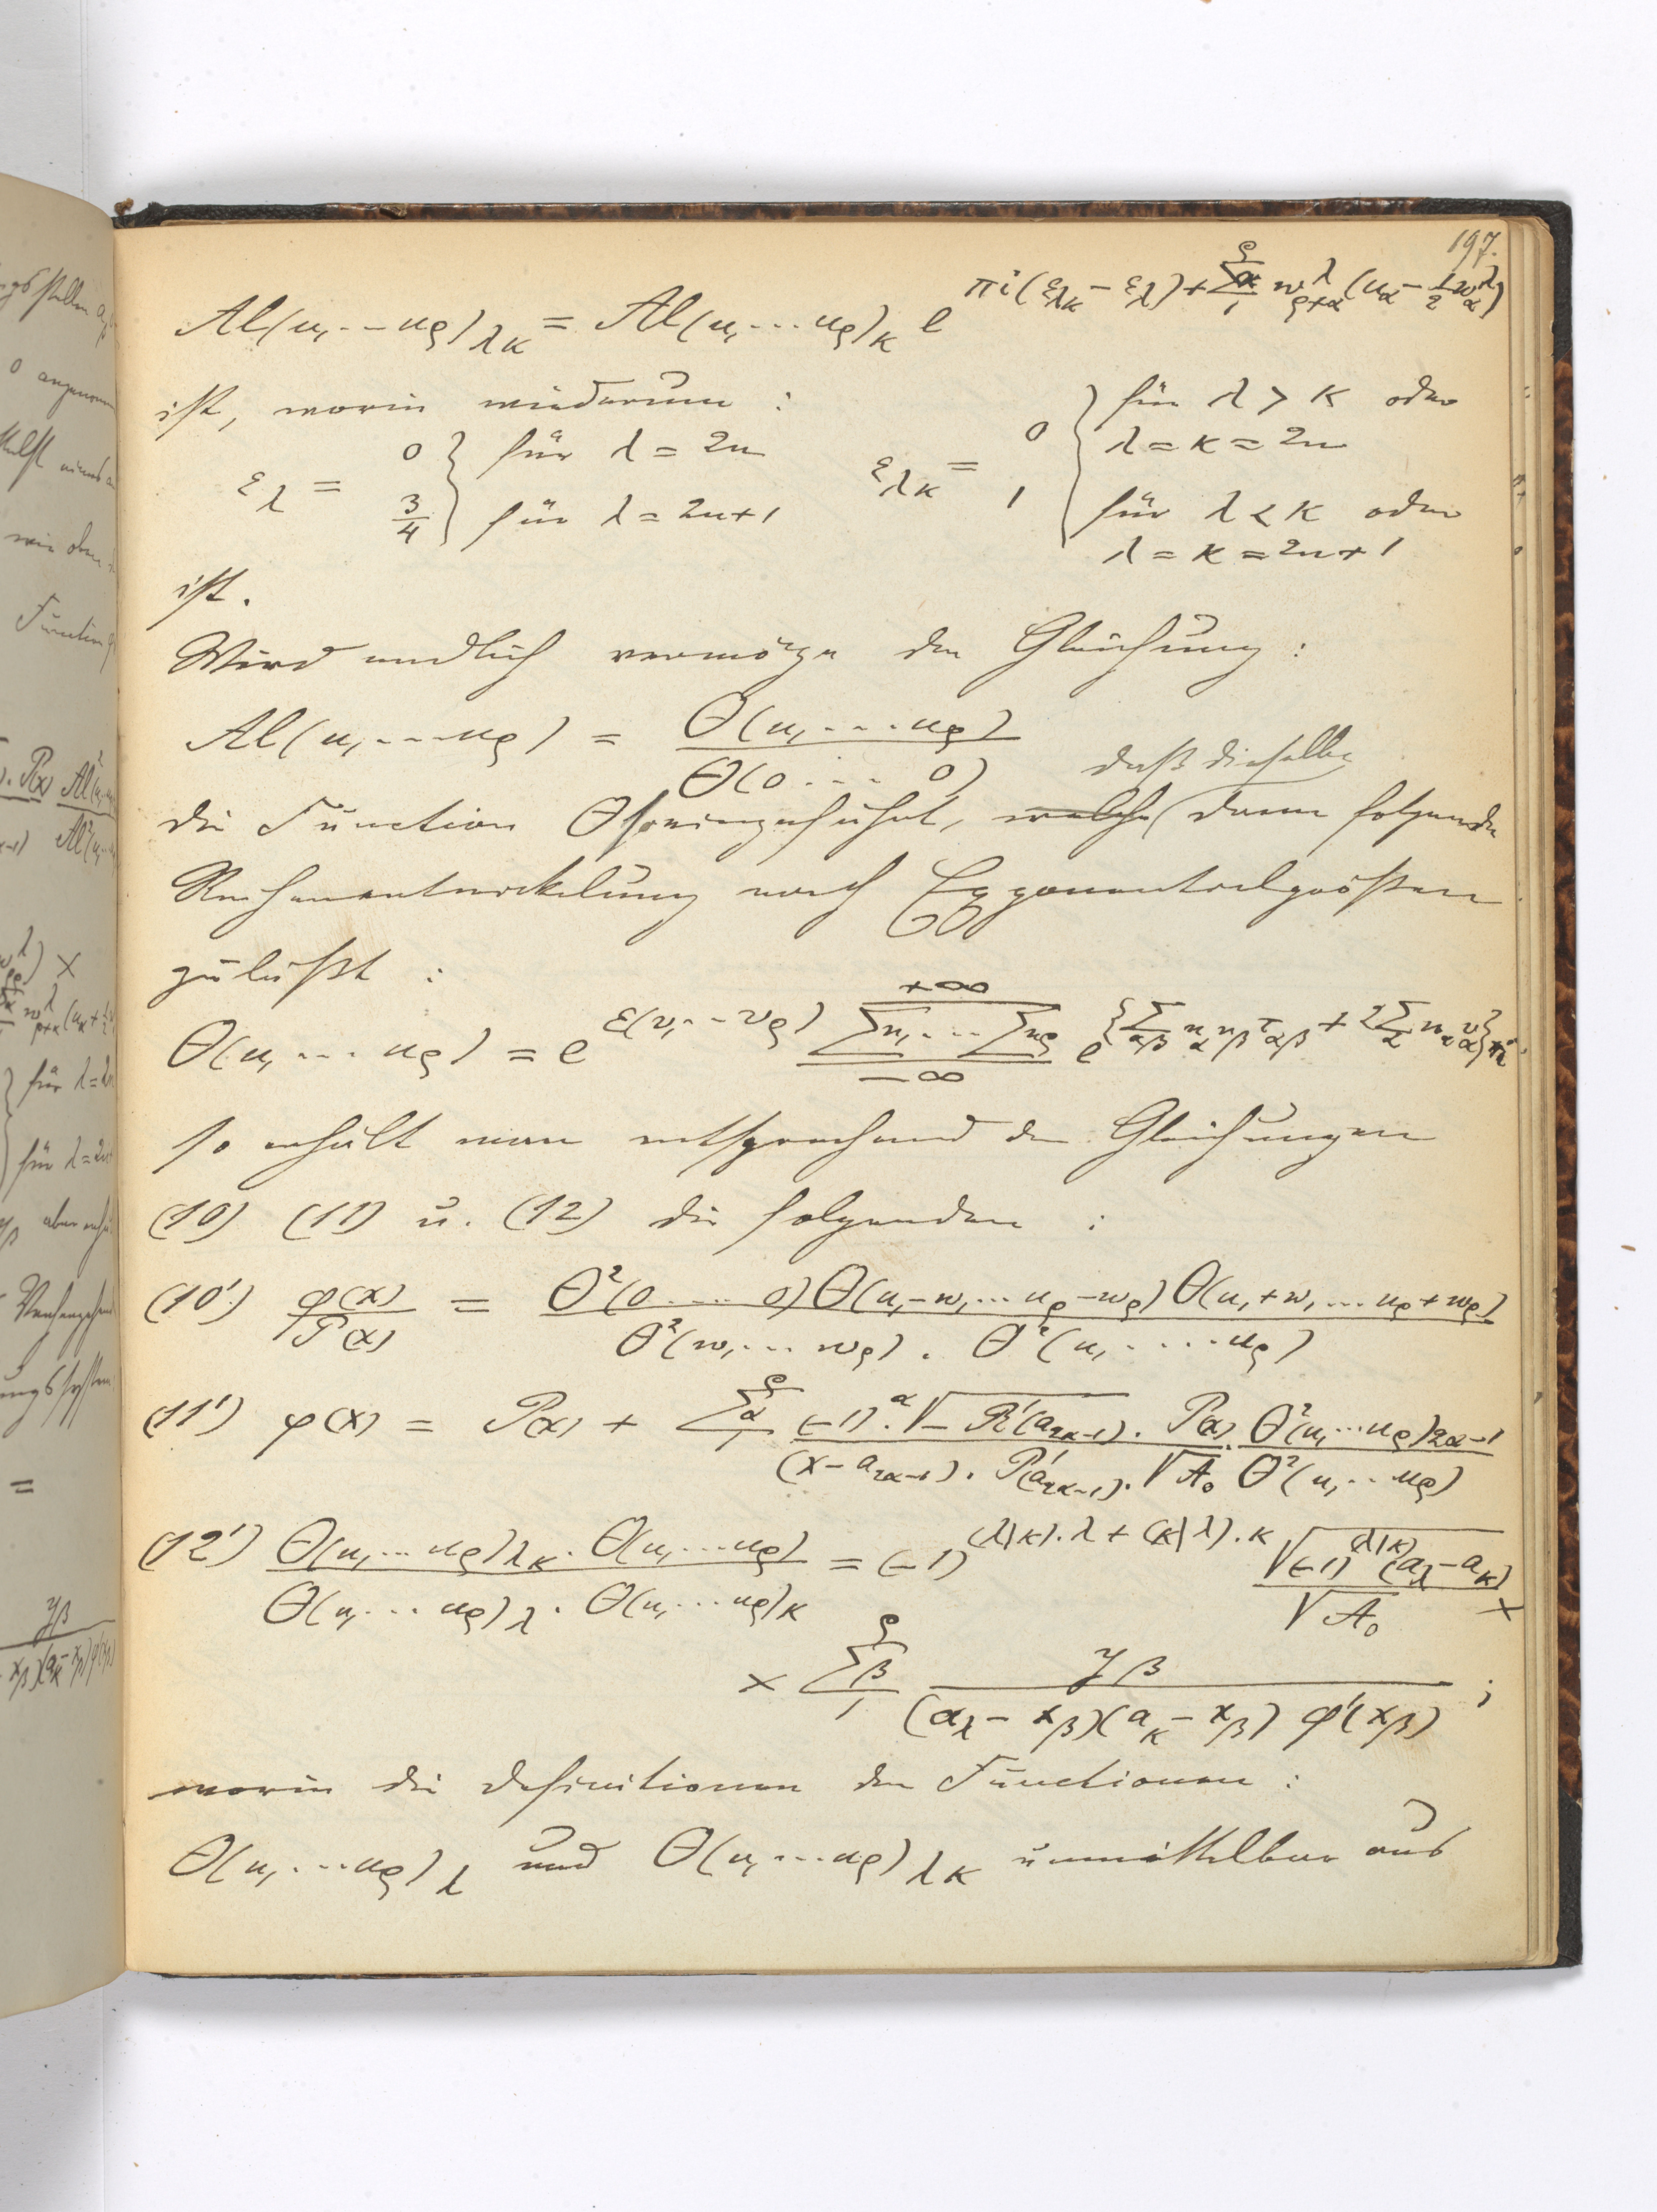 197.
Al(u₁ --- u_ρ)_λκ = Al(u₁ ... u_ρ)_κ e^{πi(ε_λκ - ε_λ) + Σ_α w^λ_{ρ+α} (u_α - ½ w^λ_α)}
ist, worin wiederum :
ε_λ = { 0 für λ = 2n
3/4 für λ = 2n+1 }
ε_λκ = { 0 für λ > κ oder
λ = κ = 2n
1 für λ < κ oder
λ = κ = 2n+1 }
ist.
Wird endlich vermöge der Gleichung :
Al(u₁ --- u_ρ) = Θ(u₁ .... u_ρ) / Θ(0 ... 0)
daß dieselbe
die Function Θ eingeführt, welche dann folgende
Reihenentwickelung nach Exponentialgrößen
zuläßt :
Θ(u₁ ... u_ρ) = e^{ε(v₁ ... v_ρ)} Σn₁ ... Σn_ρ (-∞, +∞) e^{{Σ_αβ n_α n_β τ_αβ + 2Σ_α n_α v_α}πi}
so erhält man entsprechend den Gleichungen
(10) (11) u. (12) die folgenden :
(10'.) φ(x)/P(x) = Θ²(0 .... 0) Θ(u₁-w₁ ... u_ρ-w_ρ) Θ(u₁+w₁ ... u_ρ+w_ρ) / Θ²(w₁ ... w_ρ) . Θ²(u₁ .... u_ρ)
(11') φ(x) = P(x) + Σ_α (1, ρ) (-1)^α . √(-R'(a_{2α-1})) . P(x) / (x - a_{2α-1}) . P'(a_{2α-1}) . √A₀ . Θ²(u₁ ... u_ρ)_{2α-1} / Θ²(u₁ .. u_ρ)
(12') Θ(u₁ ... u_ρ)_λκ . Θ(u₁ ... u_ρ) / Θ(u₁ ... u_ρ)_λ . Θ(u₁ ... u_ρ)_κ = (-1)^{(λ|κ).λ + (κ|λ).κ} √((-1)^{(λ|κ)} (a_λ - a_κ)) / √A₀ ×
× Σ_β (1, ρ) y_β / (a_λ - x_β)(a_κ - x_β) φ'(x_β) ;
worin die Definitionen der Functionen :
Θ(u₁ ... u_ρ)_λ und Θ(u₁ ... u_ρ)_λκ unmittelbar aus